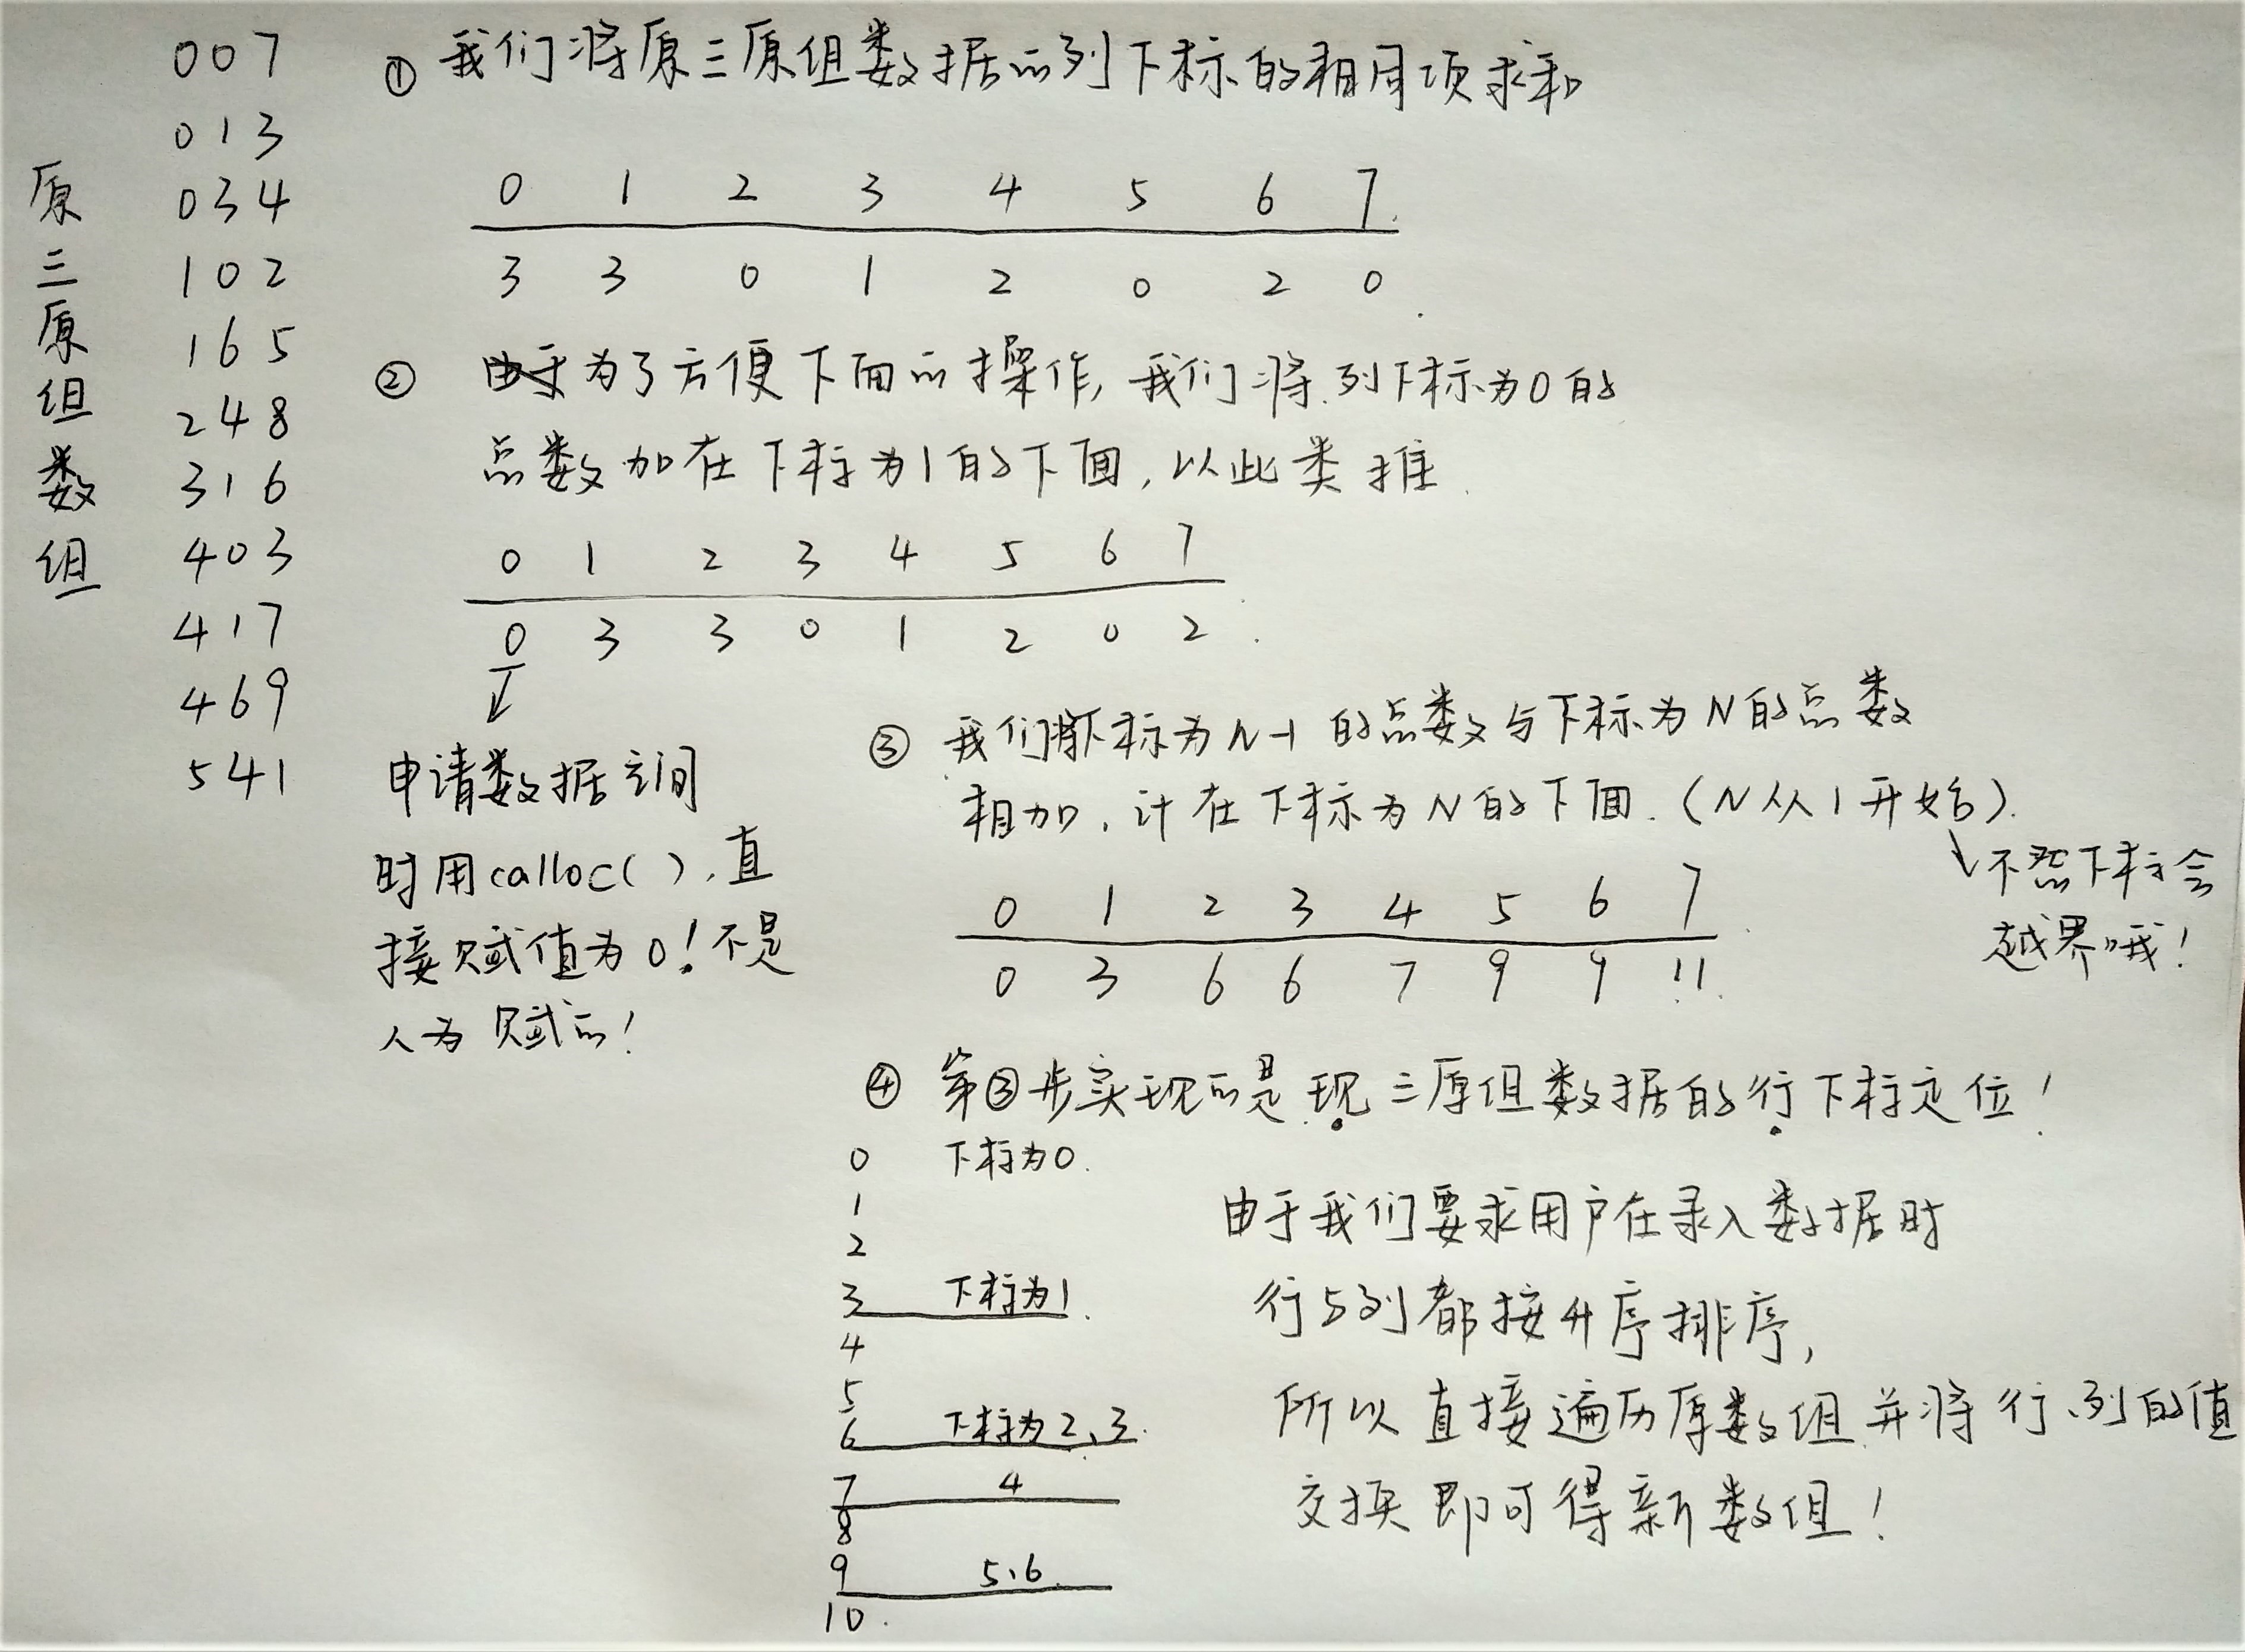 原三原组数组
007
013
034
102
165
248
316
403
417
469
541
① 我们将原三原组数据的列下标的相同项求和
0 1 2 3 4 5 6 7
3 3 0 1 2 0 2 0
② 由于为了方便下面的操作,我们将列下标为0的
点数加在下标为1的下面,以此类推
0 1 2 3 4 5 6 7
0 3 3 0 1 2 0 2
申请数据空间
时用calloc(),直
接赋值为0!不是
人为赋的!
③ 我们将下标为N-1的点数与下标为N的点数
相加,计在下标为N的下面.(N从1开始).
不然下标会
越界哦!
0 1 2 3 4 5 6 7
0 3 6 6 7 9 9 11
④ 第③步实现的是现三原组数据的行下标定位!
0 下标为0.
1
2
3 下标为1.
4
5
6 下标为2、3.
7 4
8
9 5、6.
10.
由于我们要求用户在录入数据时
行与列都按升序排序,
所以直接遍历原数组并将行、列的值
交换即可得新数组!